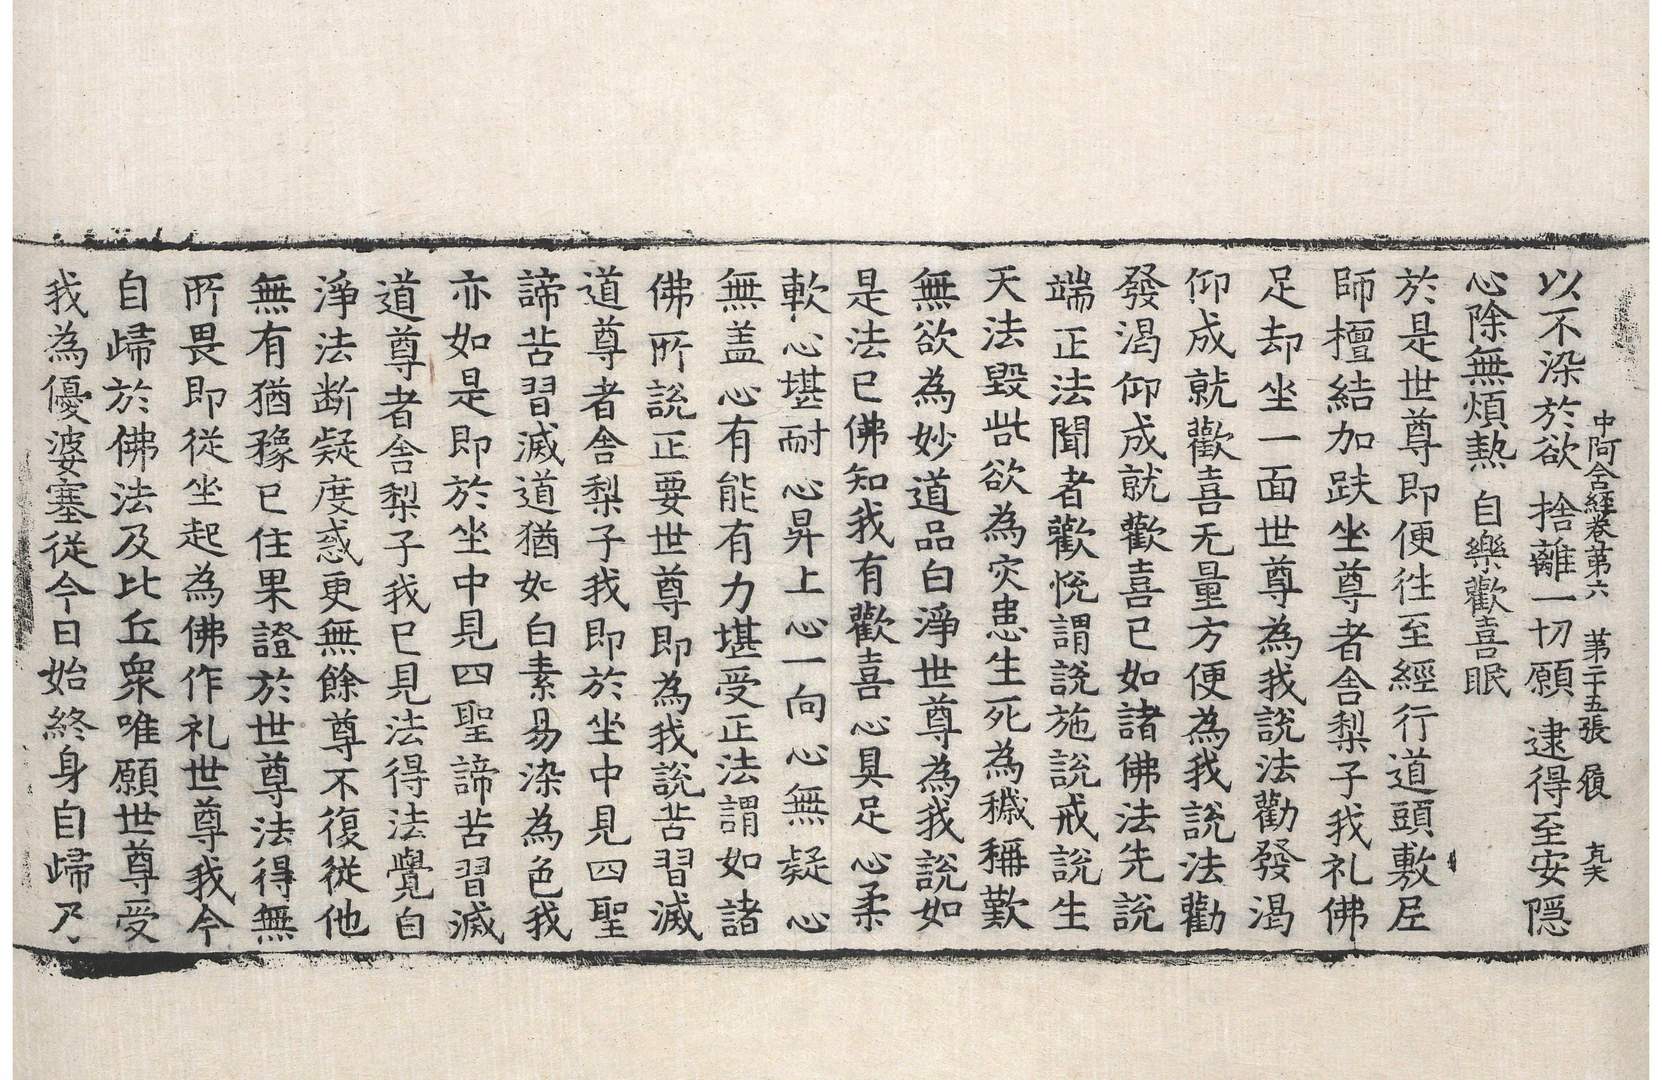 中阿含經卷第六 第二十五張 履
以不染於欲 捨離一切願 逮得至安隱
心除無煩熱 自樂歡喜眠
於是世尊即便往至經行道頭敷尼
師檀結加趺坐尊者舍梨子我礼佛
足却坐一面世尊為我說法勸發渴
仰成就歡喜无量方便為我說法勸
發渴仰成就歡喜已如諸佛法先說
端正法聞者歡悅謂說施說戒說生
天法毀呰欲為灾患生死為穢稱歎
無欲為妙道品白淨世尊為我說如
是法已佛知我有歡喜心具足心柔
軟心堪耐心昇上心一向心無疑心
無盖心有能有力堪受正法謂如諸
佛所說正要世尊即為我說苦習滅
道尊者舍梨子我即於坐中見四聖
諦苦習滅道猶如白素易染為色我
亦如是即於坐中見四聖諦苦習滅
道尊者舍梨子我已見法得法覺自
淨法断疑度惑更無餘尊不復從他
無有猶豫已住果證於世尊法得無
所畏即從坐起為佛作礼世尊我今
自歸於佛法及比丘衆唯願世尊受
我為優婆塞從今日始終身自歸乃